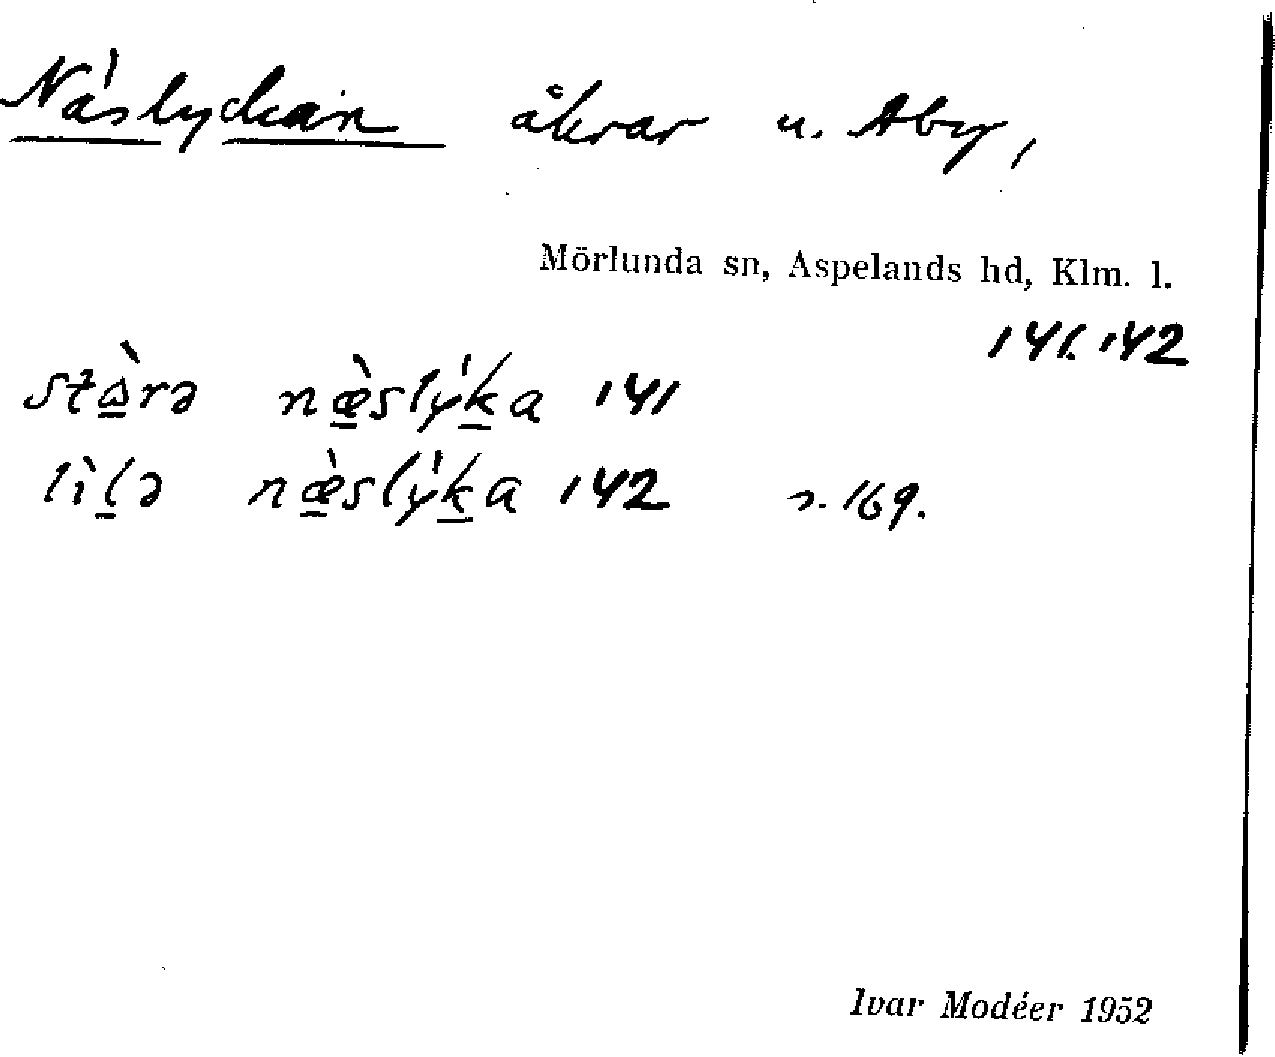 Näslyckan åkrar u. Åby,
Mörlunda sn, Aspelands hd, Klm. l.
141. 142
stòrə næ̀slýka 141
lìlə næ̀slýka 142 s. 169.
Ivar Modéer 1952